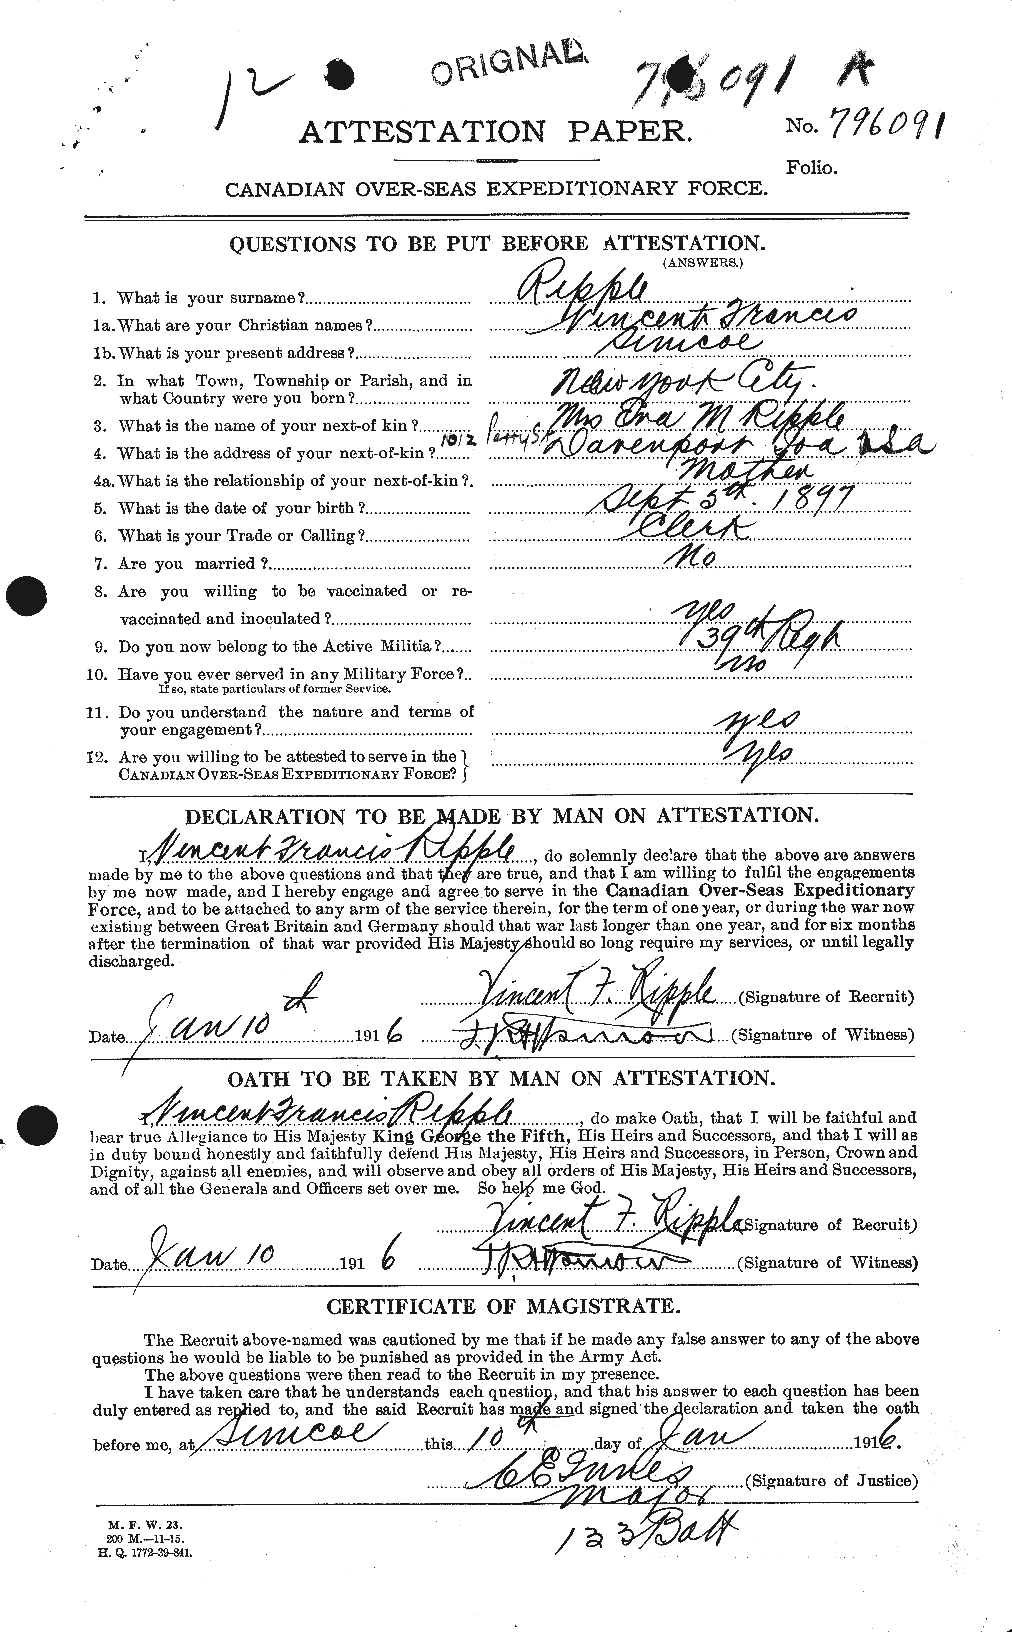 12 ORIGNAL 796091 A
ATTESTATION PAPER. No. 796091
Folio.
CANADIAN OVER-SEAS EXPEDITIONARY FORCE.
QUESTIONS TO BE PUT BEFORE ATTESTATION.
(ANSWERS.)
1. What is your surname? Ripple
1a. What are your Christian names? Vincent Francis
1b. What is your present address? Simcoe
2. In what Town, Township or Parish, and in
what Country were you born? New York City.
3. What is the name of your next-of kin? Mrs Eva M Ripple
4. What is the address of your next-of-kin? 1012 Perry St Davenport Ioa USA
4a. What is the relationship of your next-of-kin? Mother
5. What is the date of your birth? Sept 5th. 1897
6. What is your Trade or Calling? Clerk
7. Are you married? No
8. Are you willing to be vaccinated or re-
vaccinated and inoculated? yes
9. Do you now belong to the Active Militia? 39th Regt
10. Have you ever served in any Military Force? no
If so, state particulars of former Service.
11. Do you understand the nature and terms of
your engagement? yes
12. Are you willing to be attested to serve in the
CANADIAN OVER-SEAS EXPEDITIONARY FORCE? yes
DECLARATION TO BE MADE BY MAN ON ATTESTATION.
I, Vincent Francis Ripple, do solemnly declare that the above are answers
made by me to the above questions and that they are true, and that I am willing to fulfil the engagements
by me now made, and I hereby engage and agree to serve in the Canadian Over-Seas Expeditionary
Force, and to be attached to any arm of the service therein, for the term of one year, or during the war now
existing between Great Britain and Germany should that war last longer than one year, and for six months
after the termination of that war provided His Majesty should so long require my services, or until legally
discharged.
Vincent F. Ripple (Signature of Recruit)
Date Jan 10th 1916 (Signature of Witness)
OATH TO BE TAKEN BY MAN ON ATTESTATION.
I, Vincent Francis Ripple, do make Oath, that I will be faithful and
bear true Allegiance to His Majesty King George the Fifth, His Heirs and Successors, and that I will as
in duty bound honestly and faithfully defend His Majesty, His Heirs and Successors, in Person, Crown and
Dignity, against all enemies, and will observe and obey all orders of His Majesty, His Heirs and Successors,
and of all the Generals and Officers set over me. So help me God.
Vincent F. Ripple (Signature of Recruit)
Date Jan 10 1916 (Signature of Witness)
CERTIFICATE OF MAGISTRATE.
The Recruit above-named was cautioned by me that if he made any false answer to any of the above
questions he would be liable to be punished as provided in the Army Act.
The above questions were then read to the Recruit in my presence.
I have taken care that he understands each question, and that his answer to each question has been
duly entered as replied to, and the said Recruit has made and signed the declaration and taken the oath
before me, at Simcoe this 10th day of Jan 1916.
C E Innes (Signature of Justice)
Major
133 Batt
M. F. W. 23.
200 M.—11-15.
H. Q. 1772-39-841.